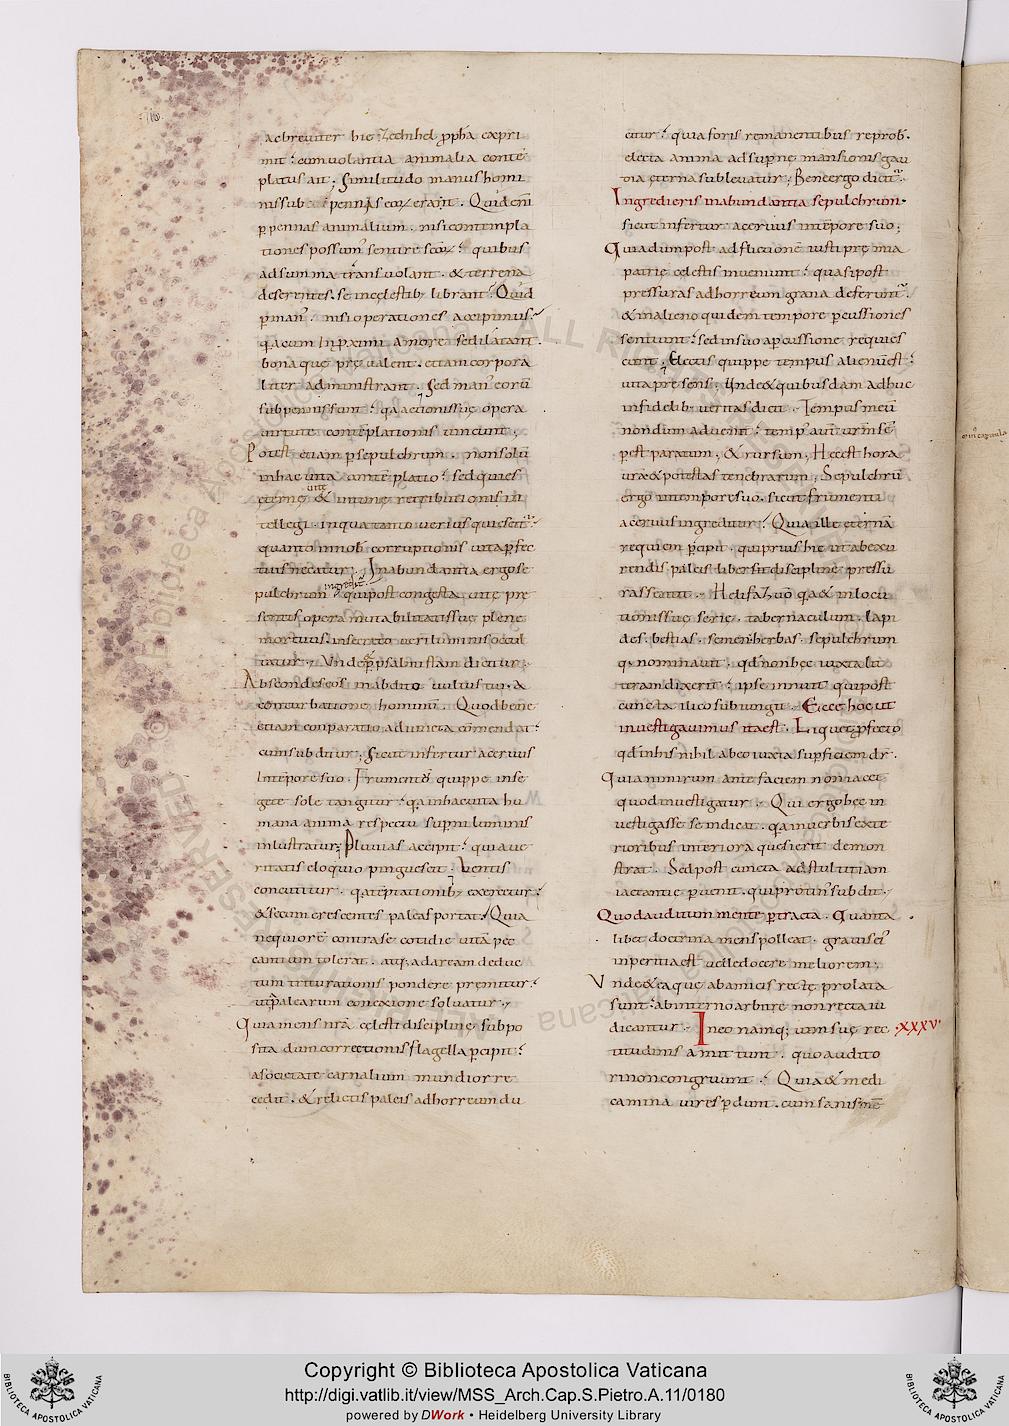 ac breviter hic Zechihel ꝓpha expri
mit : cum volantia animalia contē
platus ait ; Similitudo manus homi
nis sub pennis eoꝝ erant . Quid enī
ꝑ pennas animalium . nisi contempla
tiones possum sentire scōꝝ : quibus
ad summa transvolant . & terrena
deserentes . se in cęlestib; librant : Quid
ꝑ man' . nisi operationes accipimus
q̄a cum in ꝓximi amore se dilatant .
bona que prę valent . etiam corpora
liter administrant . Sed man' eorū
sub pennis sunt : q̄a actionis suę opera
virtute contēplationis vincunt ;
Potest etiam ꝑ sepulchrum . non solū
in hac vita contēplatio : sed quies
ęternę & intimę retributionis in
tellegi . in qua tanto verius quiescit :
quanto in nob corruptionis vita ꝑfec
tius necatur . In abundantia ergo se
pulchrum ingredit' qui post congesta vitę prę
sentis opera mutabilitati suę plene
mortuus . in secreto veri luminis occul
tatur ; Unde & ꝑ psalmistam dicitur ;
Abscondes eos in abdito vultus tui . a
conturbatione hominū . Quod bene
etiam conparatio adiuncta cōmendat :
cum subditur ; Sicut infertur acervus
in tempore suo . Frumentū quippe in se
gete sole tangitur : q̄a in hac vita hu
mana anima respectu superni luminis
inlustratur ; Pluvias accipit : quia ve
ritatis eloquio pinguescit ; Ventis
concutitur . q̄a temptationib; exercetur :
& secum crescentes paleas portat : Quia
nequiorē contra se cotidie vitā pec
cantium tolerat . atq; ad aream deduc
tum triturationis pondere premitur :
ut palearum conexione solvatur ;
Quia mens nrā cęlesti disciplinę subpo
sita dum correctionis flagella ꝑcipit :
a societate carnalium mundior re
cedit . & relictis paleis ad horreum du
citur : quia foris remanentibus reprob .
electa anima ad supernę mansionis gau
dia ęterna sublevatur ; Bene ergo dicit' .
Ingredieris in abundantia sepulchrum .
sicut infertur acervus in tempore suo ;
Quia dum post adflictionē iusti prę mia
patrię cęlestis inveniunt : quasi post
pressuras ad horreum grana deferunt' .
& in alieno quidem tempore ꝑcussiones
sentiunt : sed in suo a ꝑcussione requies
cunt . Electis quippe tempus alienū est :
vita pręsens ; Unde & quibusdam adhuc
infidelib; veritas dicit . Tempus meū
nondum advenit : temp' aut' vrm sem
ꝑ est paratum ; & rursum ; Hęc est hora
vra & potestas tenebrarum ; Sepulchrū
ergo in tempore suo . sicut frumenti
acervus ingreditur : Quia ille ęternā
requiem ꝑcipit . qui prius hic ut ab exu
rendis paleis liber sit disciplinę pressu
ras sentit . Helifaz vō q̄a & in locu
tionis suę serię . tabernaculum . lapi
des . bestias . semen . herbas . sepulchrum
q; nominavit . qd' non hęc iuxta lit
teram dixerit : ipse innuit qui post
cuncta ilico subiungit . Ecce hoc ut
investigavimus ita est . Liquet ꝓfecto
qd' in his nihil ab eo iuxta supficiem dr .
Quia nimirum ante faciem non iacet
quod investigatur . Qui ergo hęc in
vestigasse se indicat . q̄a in verbis exte
rioribus interiora quesierit demon
strat . Sed post cuncta ad stultitiam
iactantię ꝑvenit . qui protin' subdit .
Quod auditum mente ꝑtracta . Quanta
libet doctrina mens polleat . gravis ei'
inperitia est velle docere meliorem ;
Unde & ea que ab amicis recte prolata
sunt : ab interno arbitre non recta iu
dicantur . In eo namq; vim suę rec ·XXXV·
titudinis amittunt . quo audito
ri non congruunt : Quia & medi
camina vires ꝑdunt . cum sanis mē
om capitula
Copyright © Biblioteca Apostolica Vaticana
http://digi.vatlib.it/view/MSS_Arch.Cap.S.Pietro.A.11/0180
powered by DWork • Heidelberg University Library
BIBLIOTECA APOSTOLICA VATICANA
BIBLIOTECA APOSTOLICA VATICANA